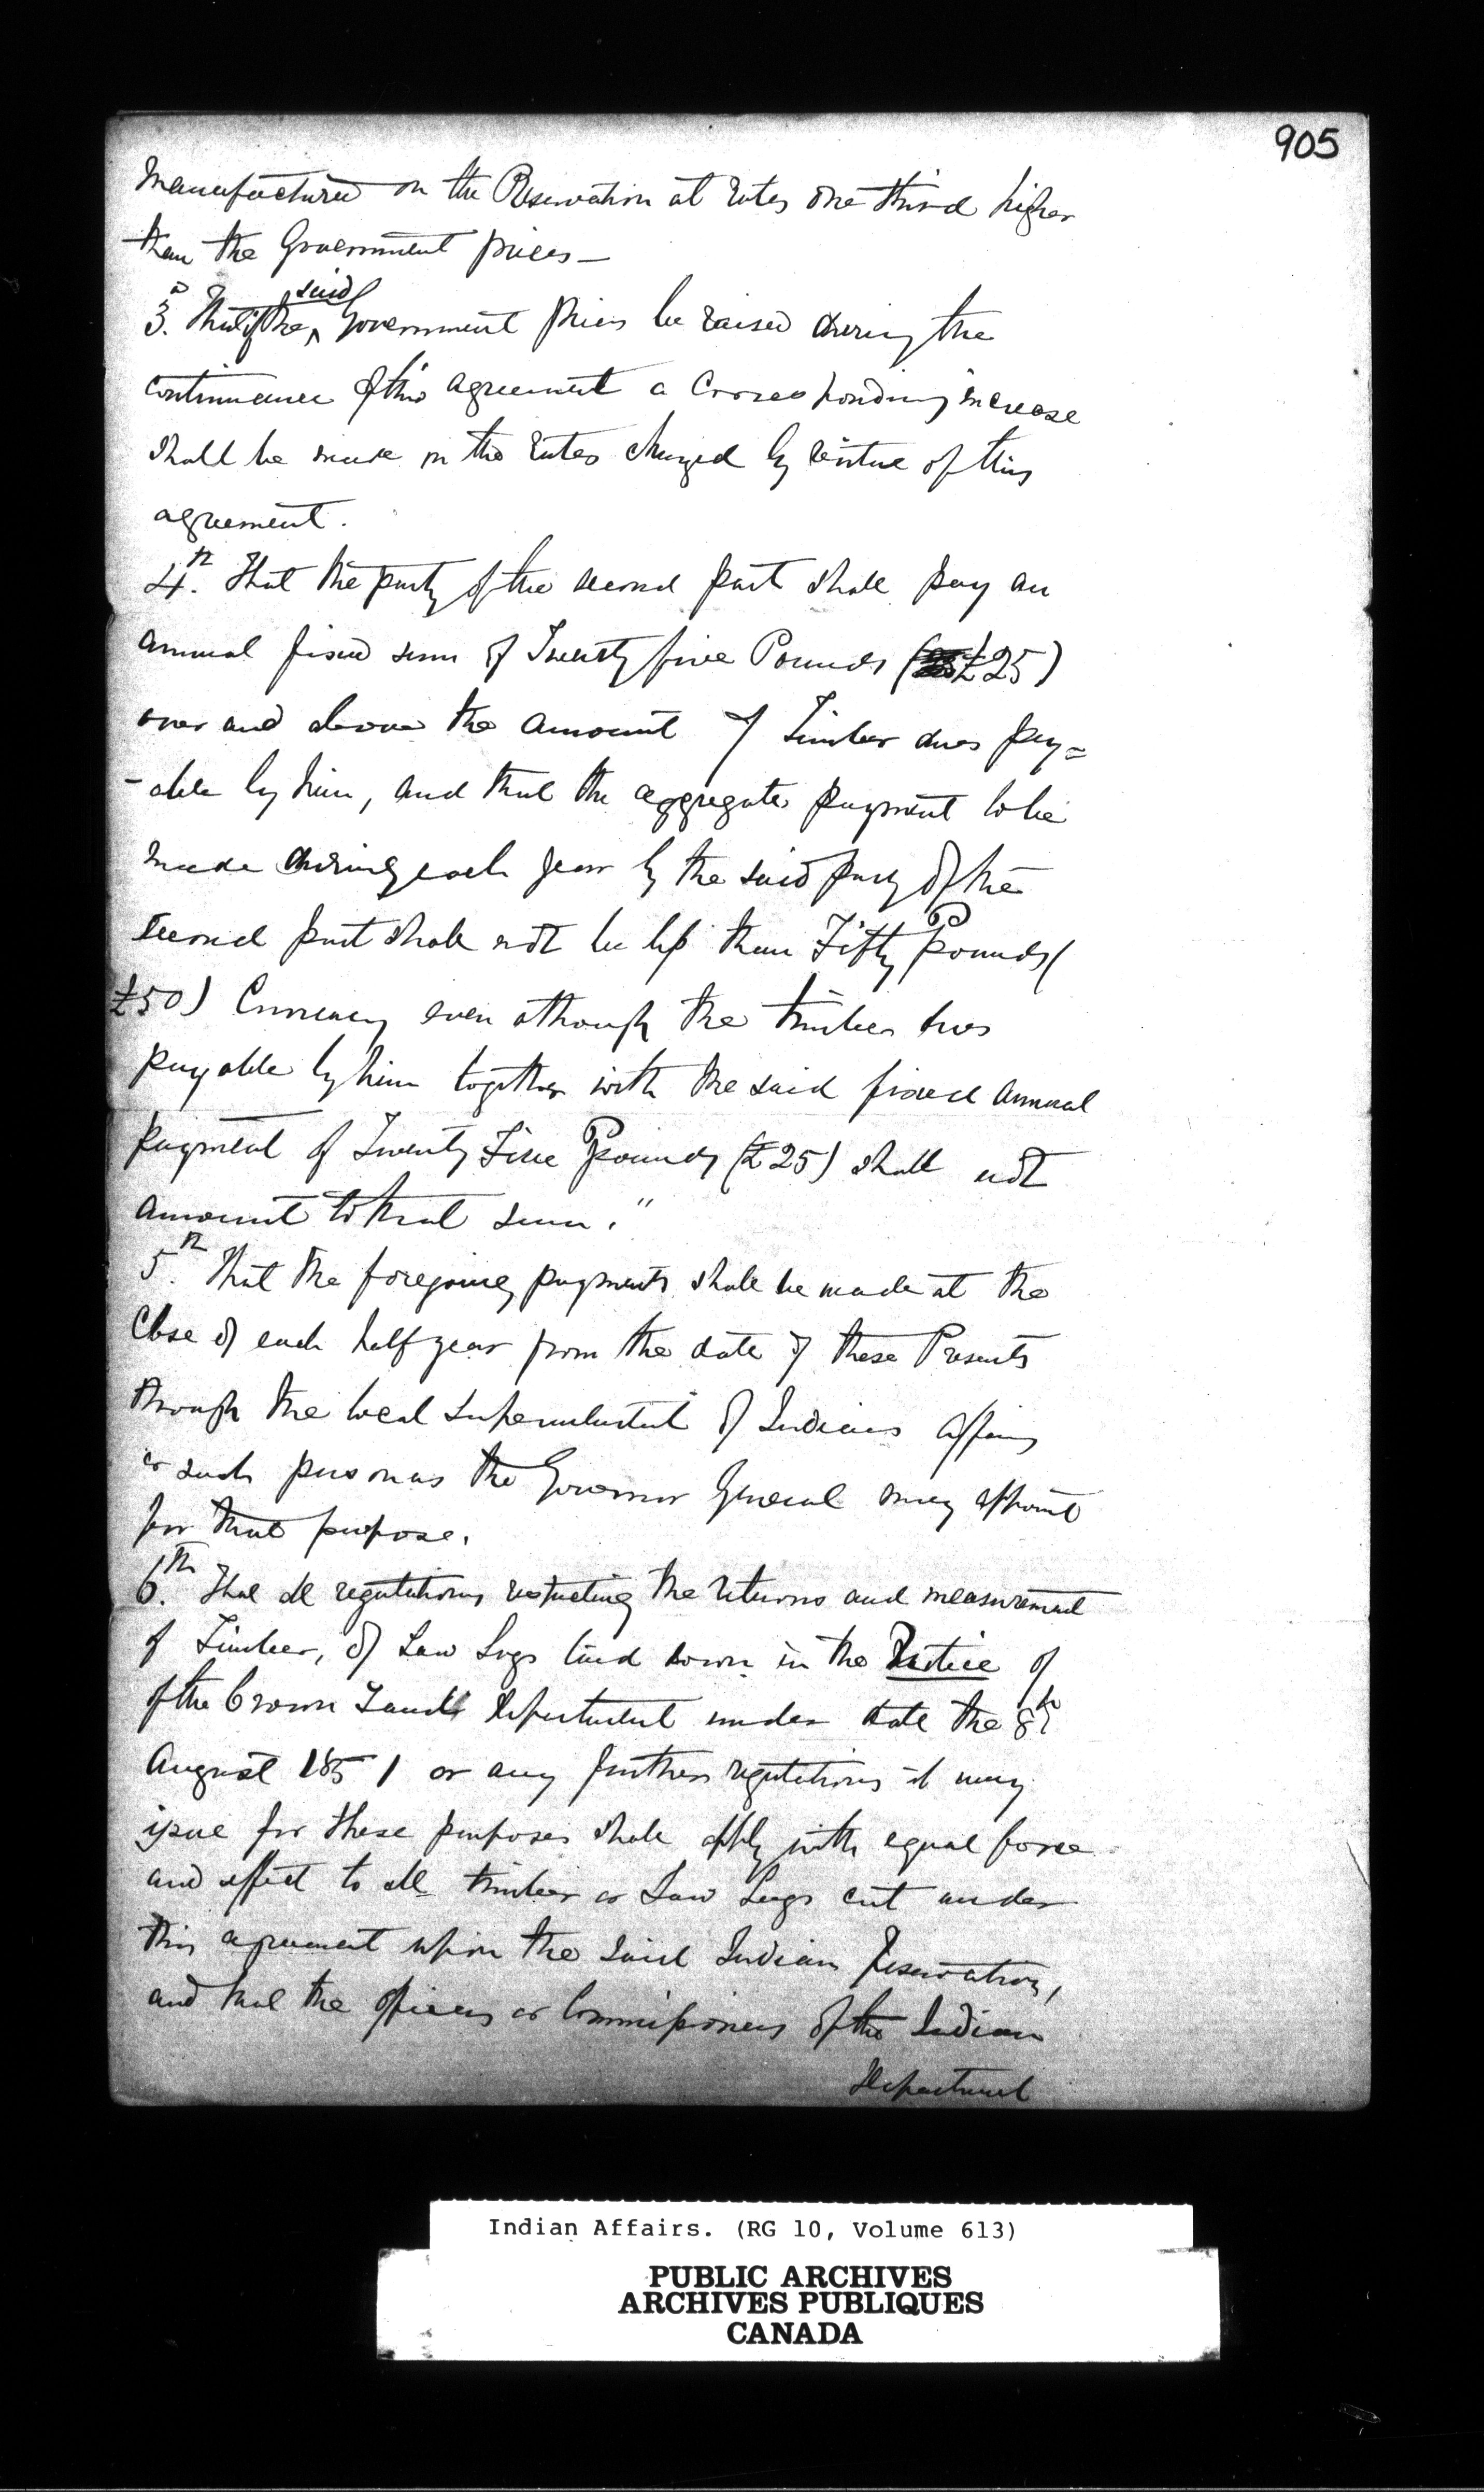 905
manufactured on the Reservation at rates one third higher
than the Government prices –
3.d That if the said Government prices be raised during the
continuance of this agreement a corresponding increase
shall be made in the rates charged by virtue of this
agreement.
4th. That the party of the second part shall pay an
annual fixed sum of Twenty five Pounds (£25)
over and above the amount of Timber dues pay=
-able by him, and that the aggregate payment to be
made during each year by the said party of the
second part shall not be less than Fifty Pounds (
£50) Currency even although the timber dues
payable by him together with the said fixed annual
payment of Twenty Five Pounds (£25) shall not
amount to that sum."
5th. That the foregoing payments shall be made at the
Close of each half year from the date of these Presents
through the local Superintendent of Indian Affairs
or such person as the Governor General may appoint
for that purpose.
6th. That all regulations respecting the returns and measurement
of Timber, of Saw Logs laid down in the Notice of
of the Crown Lands Department under date the 8th
August 1851 or any further regulations it may
issue for these purposes shall apply with equal force
and effect to all timber or Saw Logs cut under
this agreement upon the said Indian Reservation,
and that the officers or Commissioners of the Indian
Department
Indian Affairs. (RG 10, Volume 613)
PUBLIC ARCHIVES
ARCHIVES PUBLIQUES
CANADA